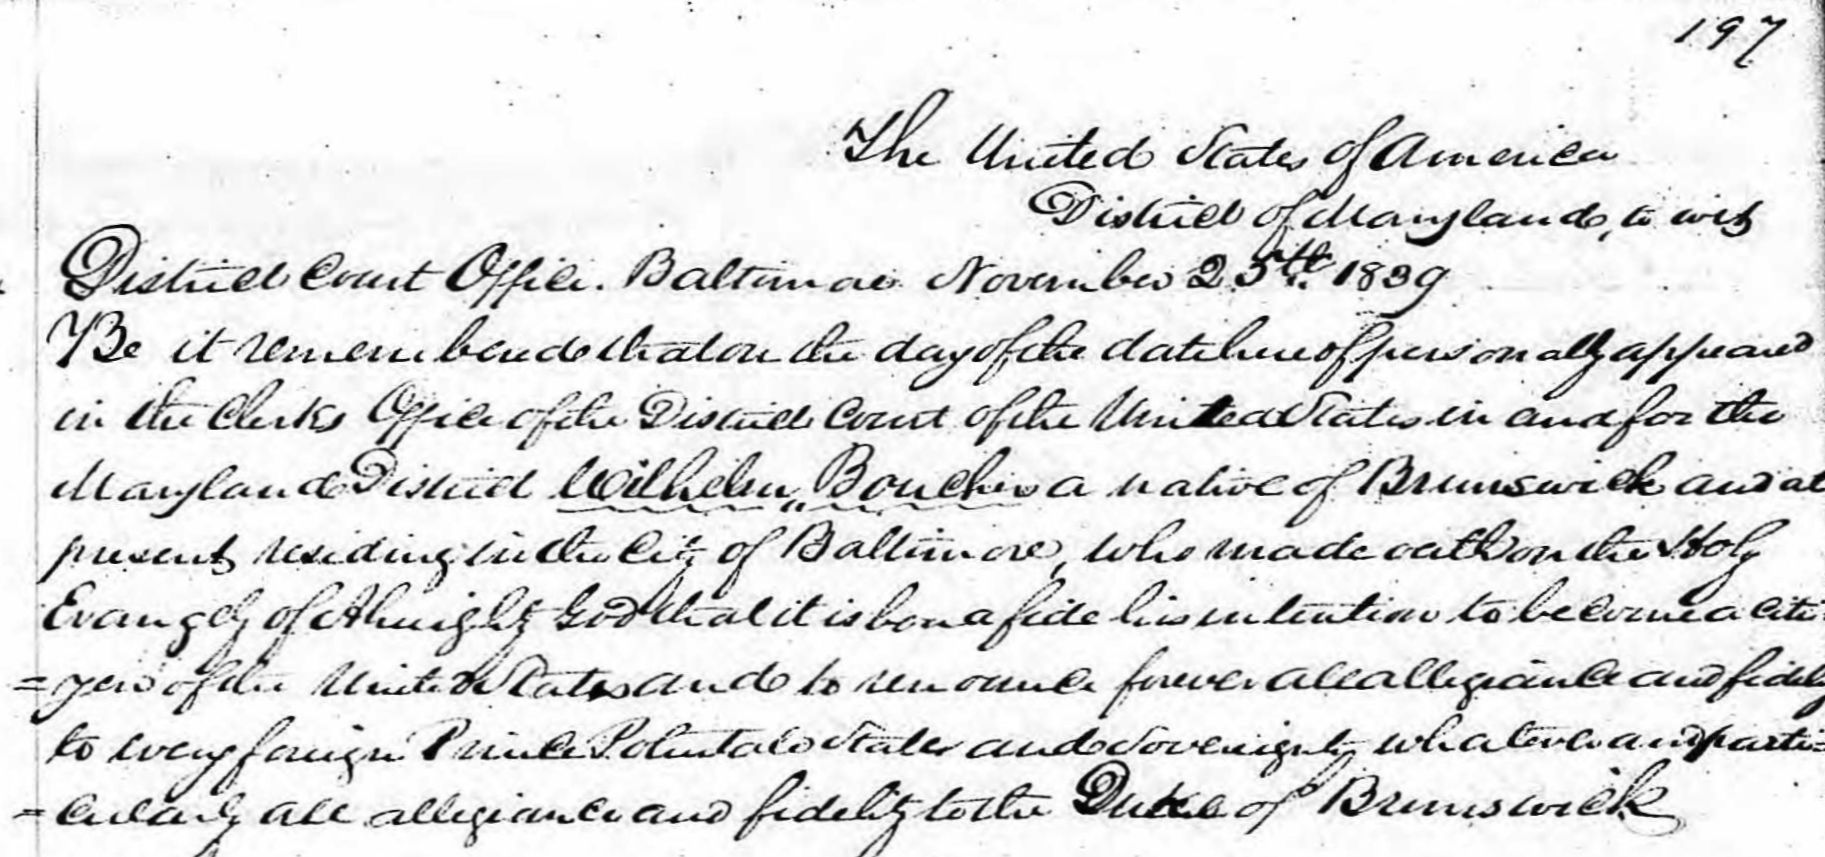 197
The United States of America
District of Maryland, to wit
District Court Office. Baltimore November 25th. 1839
Be it remembered that on the day of the date hereof personally appeared
in the Clerks Office of the District Court of the United States in and for the
Maryland District Wilhelm Boucher a native of Brunswick and at
present residing in the City of Baltimore, who made oath on the Holy
Evangely of Almighty God that it is bona fide his intention to become a citi
=zen of the United States and to renounce forever all allegiance and fidelity
to every foreign Prince Potentate State and Sovereignty whatever and parti=
=cularly all allegiance and fidelity to the Duke of Brunswick